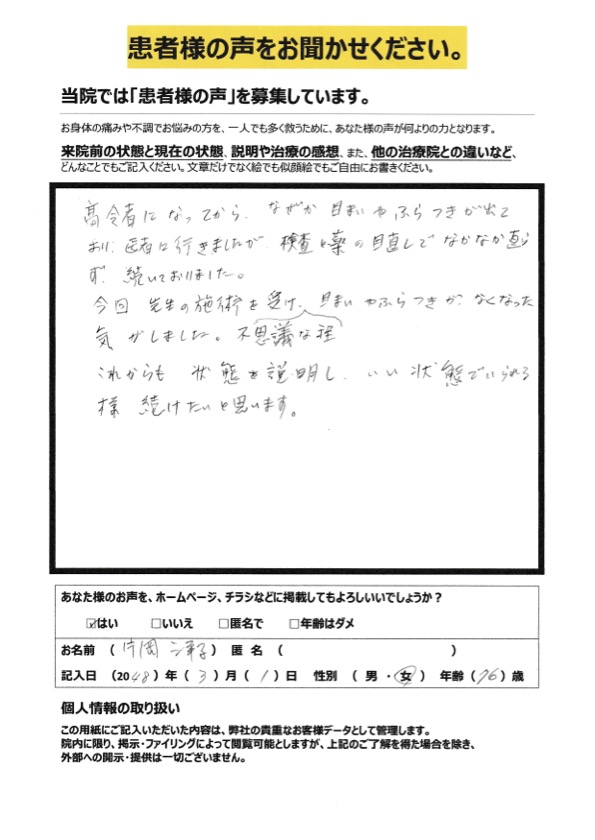 患者様の声をお聞かせください。
当院では「患者様の声」を募集しています。
お身体の痛みや不調でお悩みの方を、一人でも多く救うために、あなた様の声が何よりの力となります。
来院前の状態と現在の状態、説明や治療の感想、また、他の治療院との違いなど、
どんなことでもご記入ください。文章だけでなく絵でも似顔絵でもご自由にお書きください。
高令者になってから、 目まいやふらつきが出て
おり、医者に行きましたが、検査と薬の目直しでなかなか直ら
ず、続いておりました。
今回 先生の施術を受け、目まいやふらつきが、なくなった
気がしました。不思議な程
これからも 状態を説明し、いい状態でいられる
様 続けたいと思います。
あなた様のお声を、ホームページ、チラシなどに掲載してもよろしいいでしょうか？
☑はい □いいえ □匿名で □年齢はダメ
お名前 （片岡 ） 匿 名 （ ）
記入日 （2048）年（3）月（1）日 性別 （ 男 ・ 女 ） 年齢（76）歳
個人情報の取り扱い
この用紙にご記入いただいた内容は、弊社の貴重なお客様データとして管理します。
院内に限り、掲示・ファイリングによって閲覧可能としますが、上記のご了解を得た場合を除き、
外部への開示・提供は一切ございません。